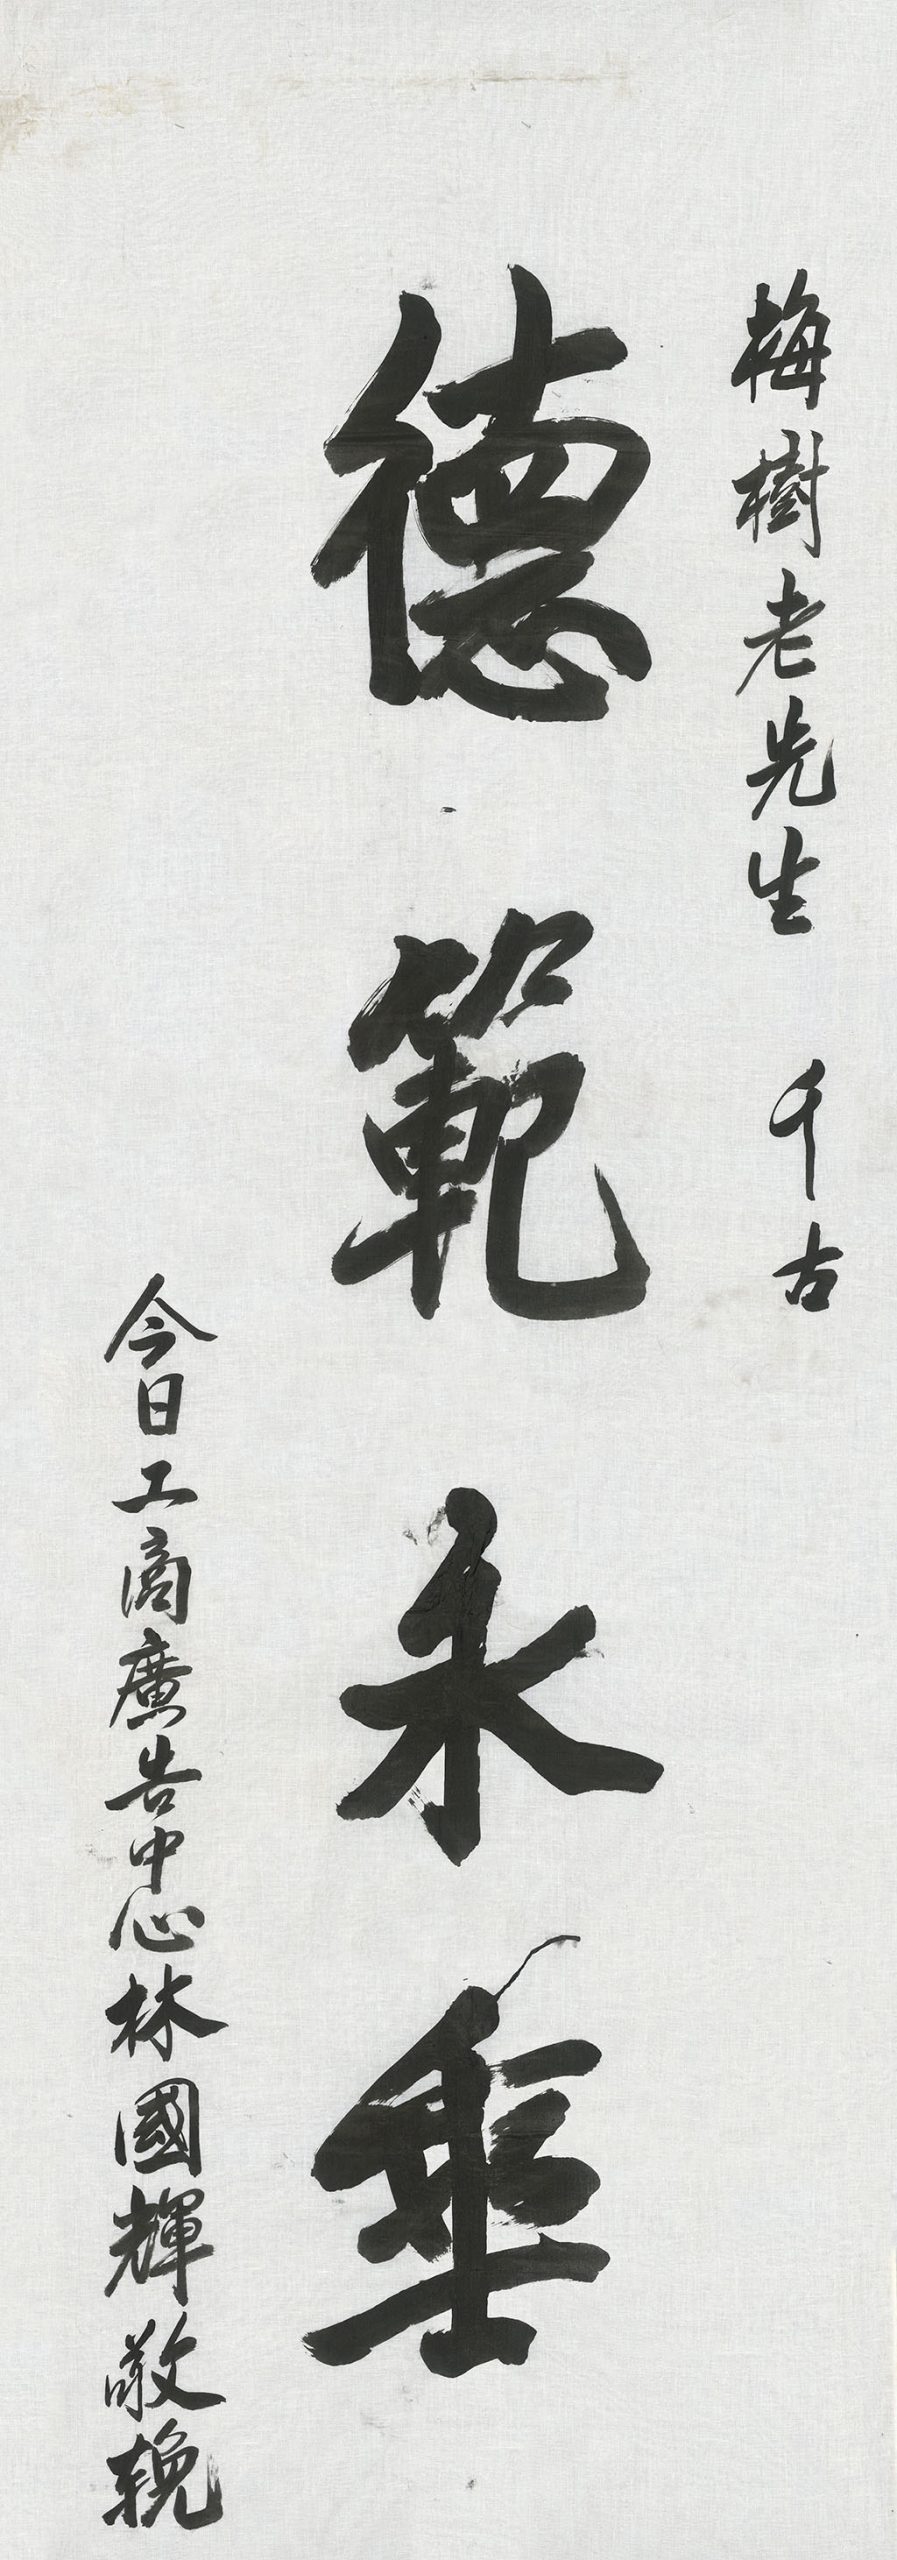 梅樹老先生 千古
德範永垂
今日工商廣告中心林國輝敬輓